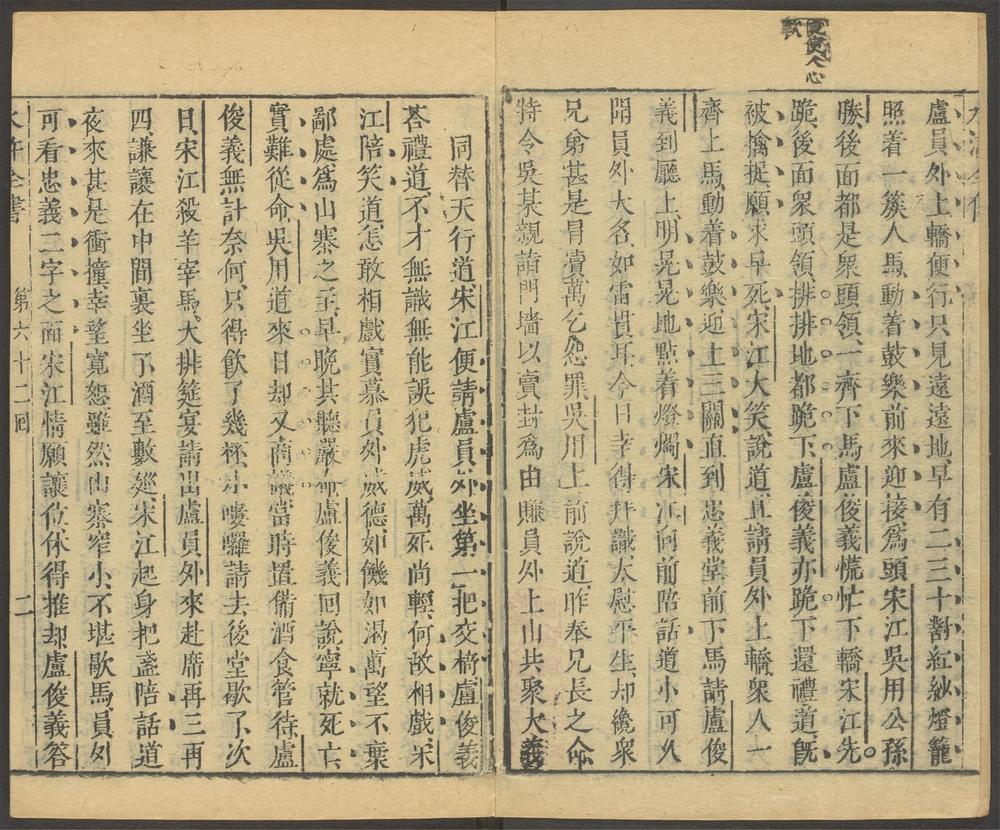 盧員外上轎便行只見遠遠地早有二三十對紅紗燈籠
照着一簇人馬動着鼓樂前來迎接爲頭宋江吳用公孫
勝後面都是衆頭領一齊下馬盧俊義慌忙下轎宋江先
跪後面衆頭領排排地都跪下盧俊義亦跪下還禮道既
被擒捉願求早死宋江大笑說道且請員外上轎衆人一
齊上馬動着鼓樂迎上三關直到忠義堂前下馬請盧俊
義到廳上明晃晃地點着燈燭宋江向前陪話道小可久
聞員外大名如雷貫耳今日幸得拜識大慰平生却纔衆
兄弟甚是冒瀆萬乞恕罪吳用上前說道昨奉兄長之命
特令吳某親詣門墻以賣卦爲由賺員外上山共聚大義
同替天行道宋江便請盧員外坐第一把交椅盧俊義
荅禮道不才無識無能誤犯虎威萬死尚輕何故相戲宋
江陪笑道怎敢相戲實慕員外威德如饑如渴萬望不棄
鄙處爲山寨之主早晚共聽嚴命盧俊義回說寧就死亡
實難從命吳用道來日却又商議當時置備酒食管待盧
俊義無計奈何只得飲了幾杯小嘍囉請去後堂歇了次
日宋江殺羊宰馬大排筵宴請出盧員外來赴席再三再
四謙讓在中間裏坐了酒至數廵宋江起身把盞陪話道
夜來甚是衝撞幸望寬恕雖然山寨窄小不堪歇馬員外
可看忠義二字之面宋江情願讓位休得推却盧俊義答
水滸全書
第六十二囘
二